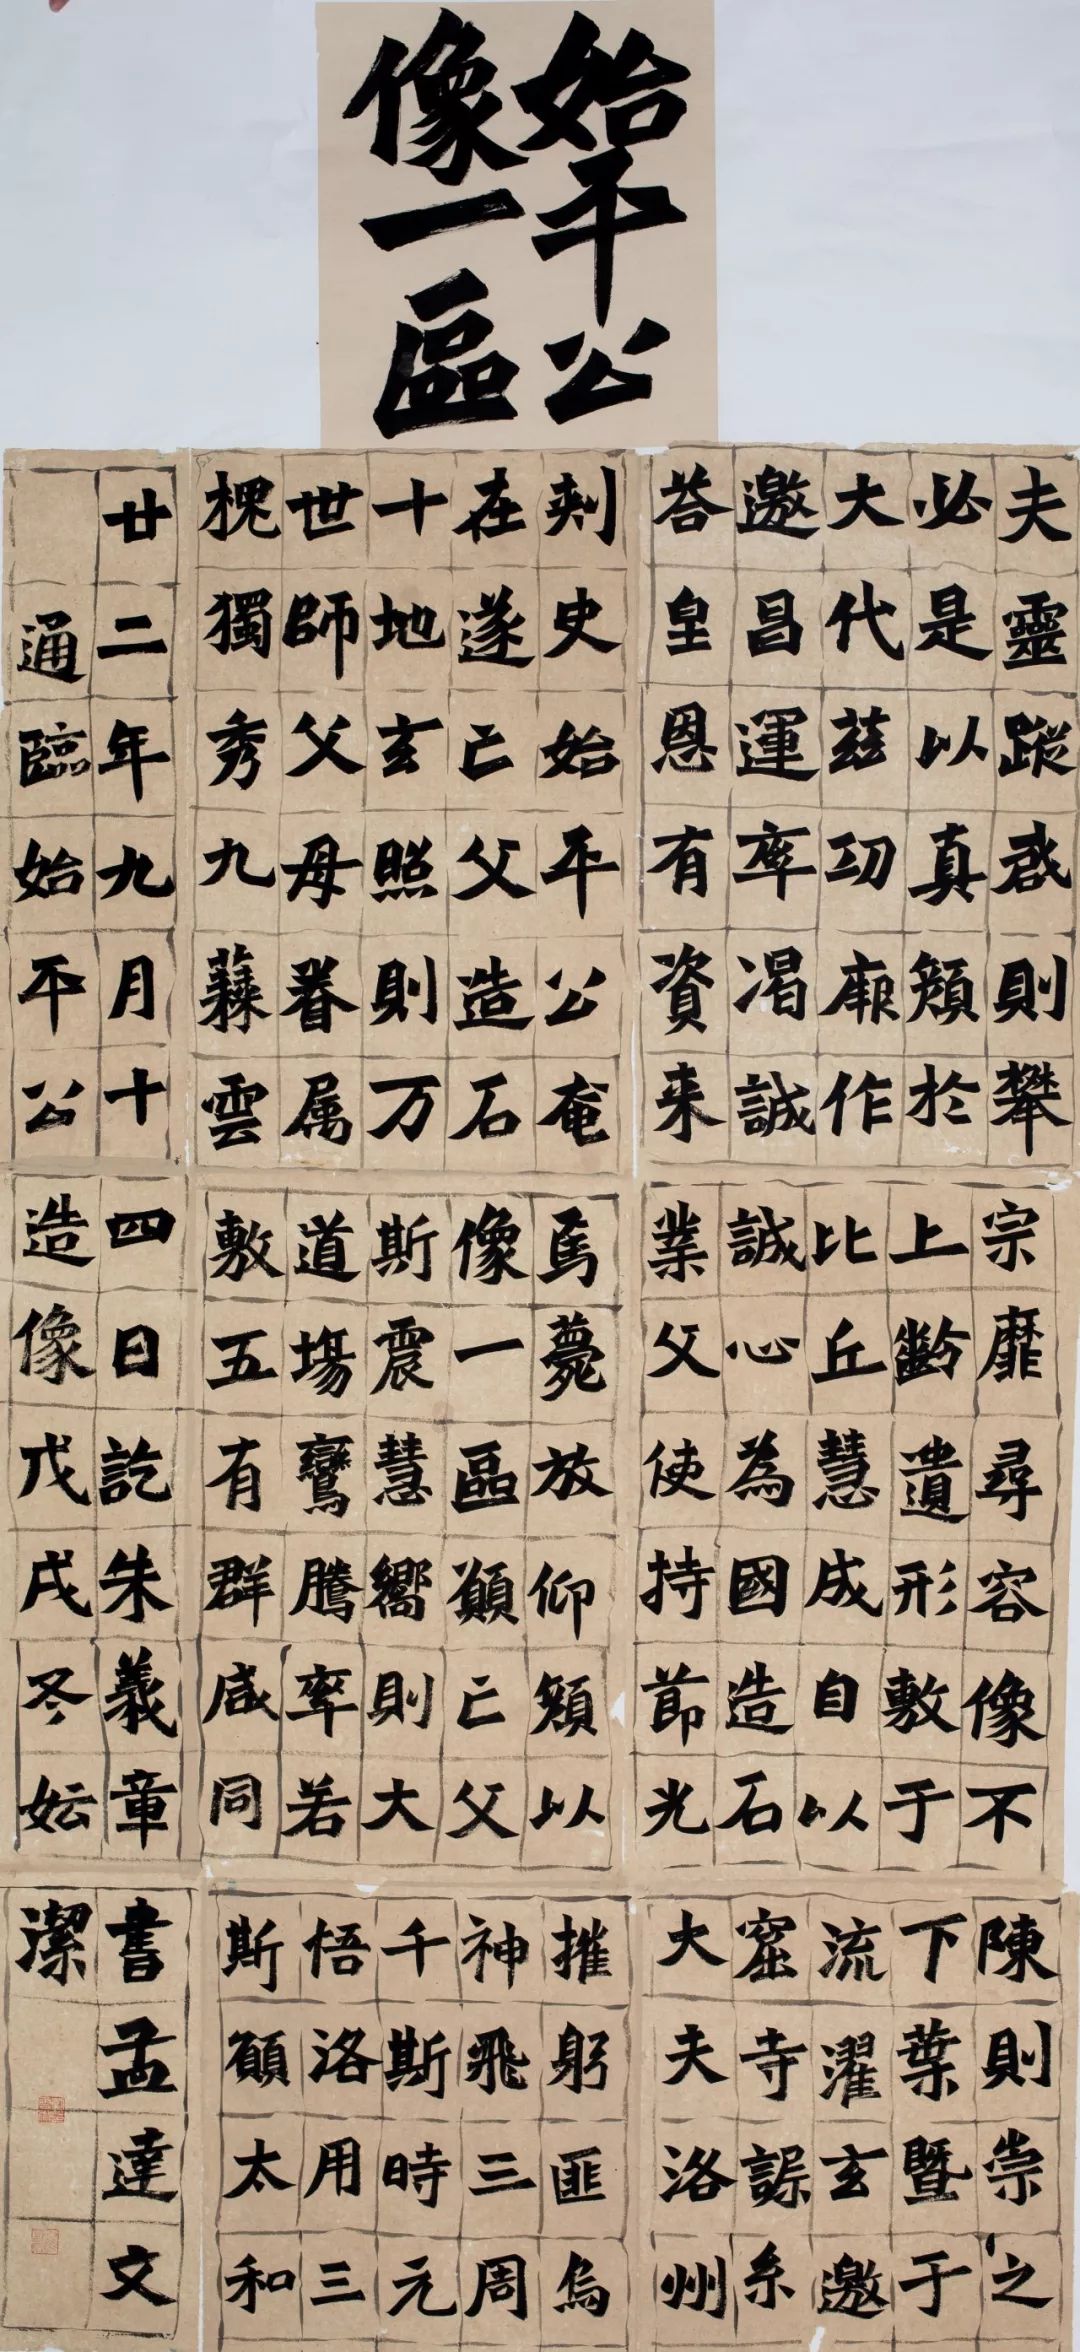 始平公
像一區
夫靈蹤啟則攀宗靡尋容像不陳則崇之
必是以真顏於上齡遺形敷于下葉暨于
大代茲功厥作比丘慧成自以流濯玄邀
邀昌運率渴誠誠心為國造石窟寺系
答皇恩有資来業父使持節光大夫洛州
刺史始平公奄焉薨放仰顏以摧躬匪烏
在遂亡父造石像一區願亡父神飛三周
十地玄照則万斯震慧嚮則大千斯時元
世師父母眷属道場鸞騰率若悟洛用三
槐獨秀九蕀雲敷五有群咸同斯願太和
廿二年九月十四日訖朱義章書孟達文
通臨始平公造像戊戌冬妘潔